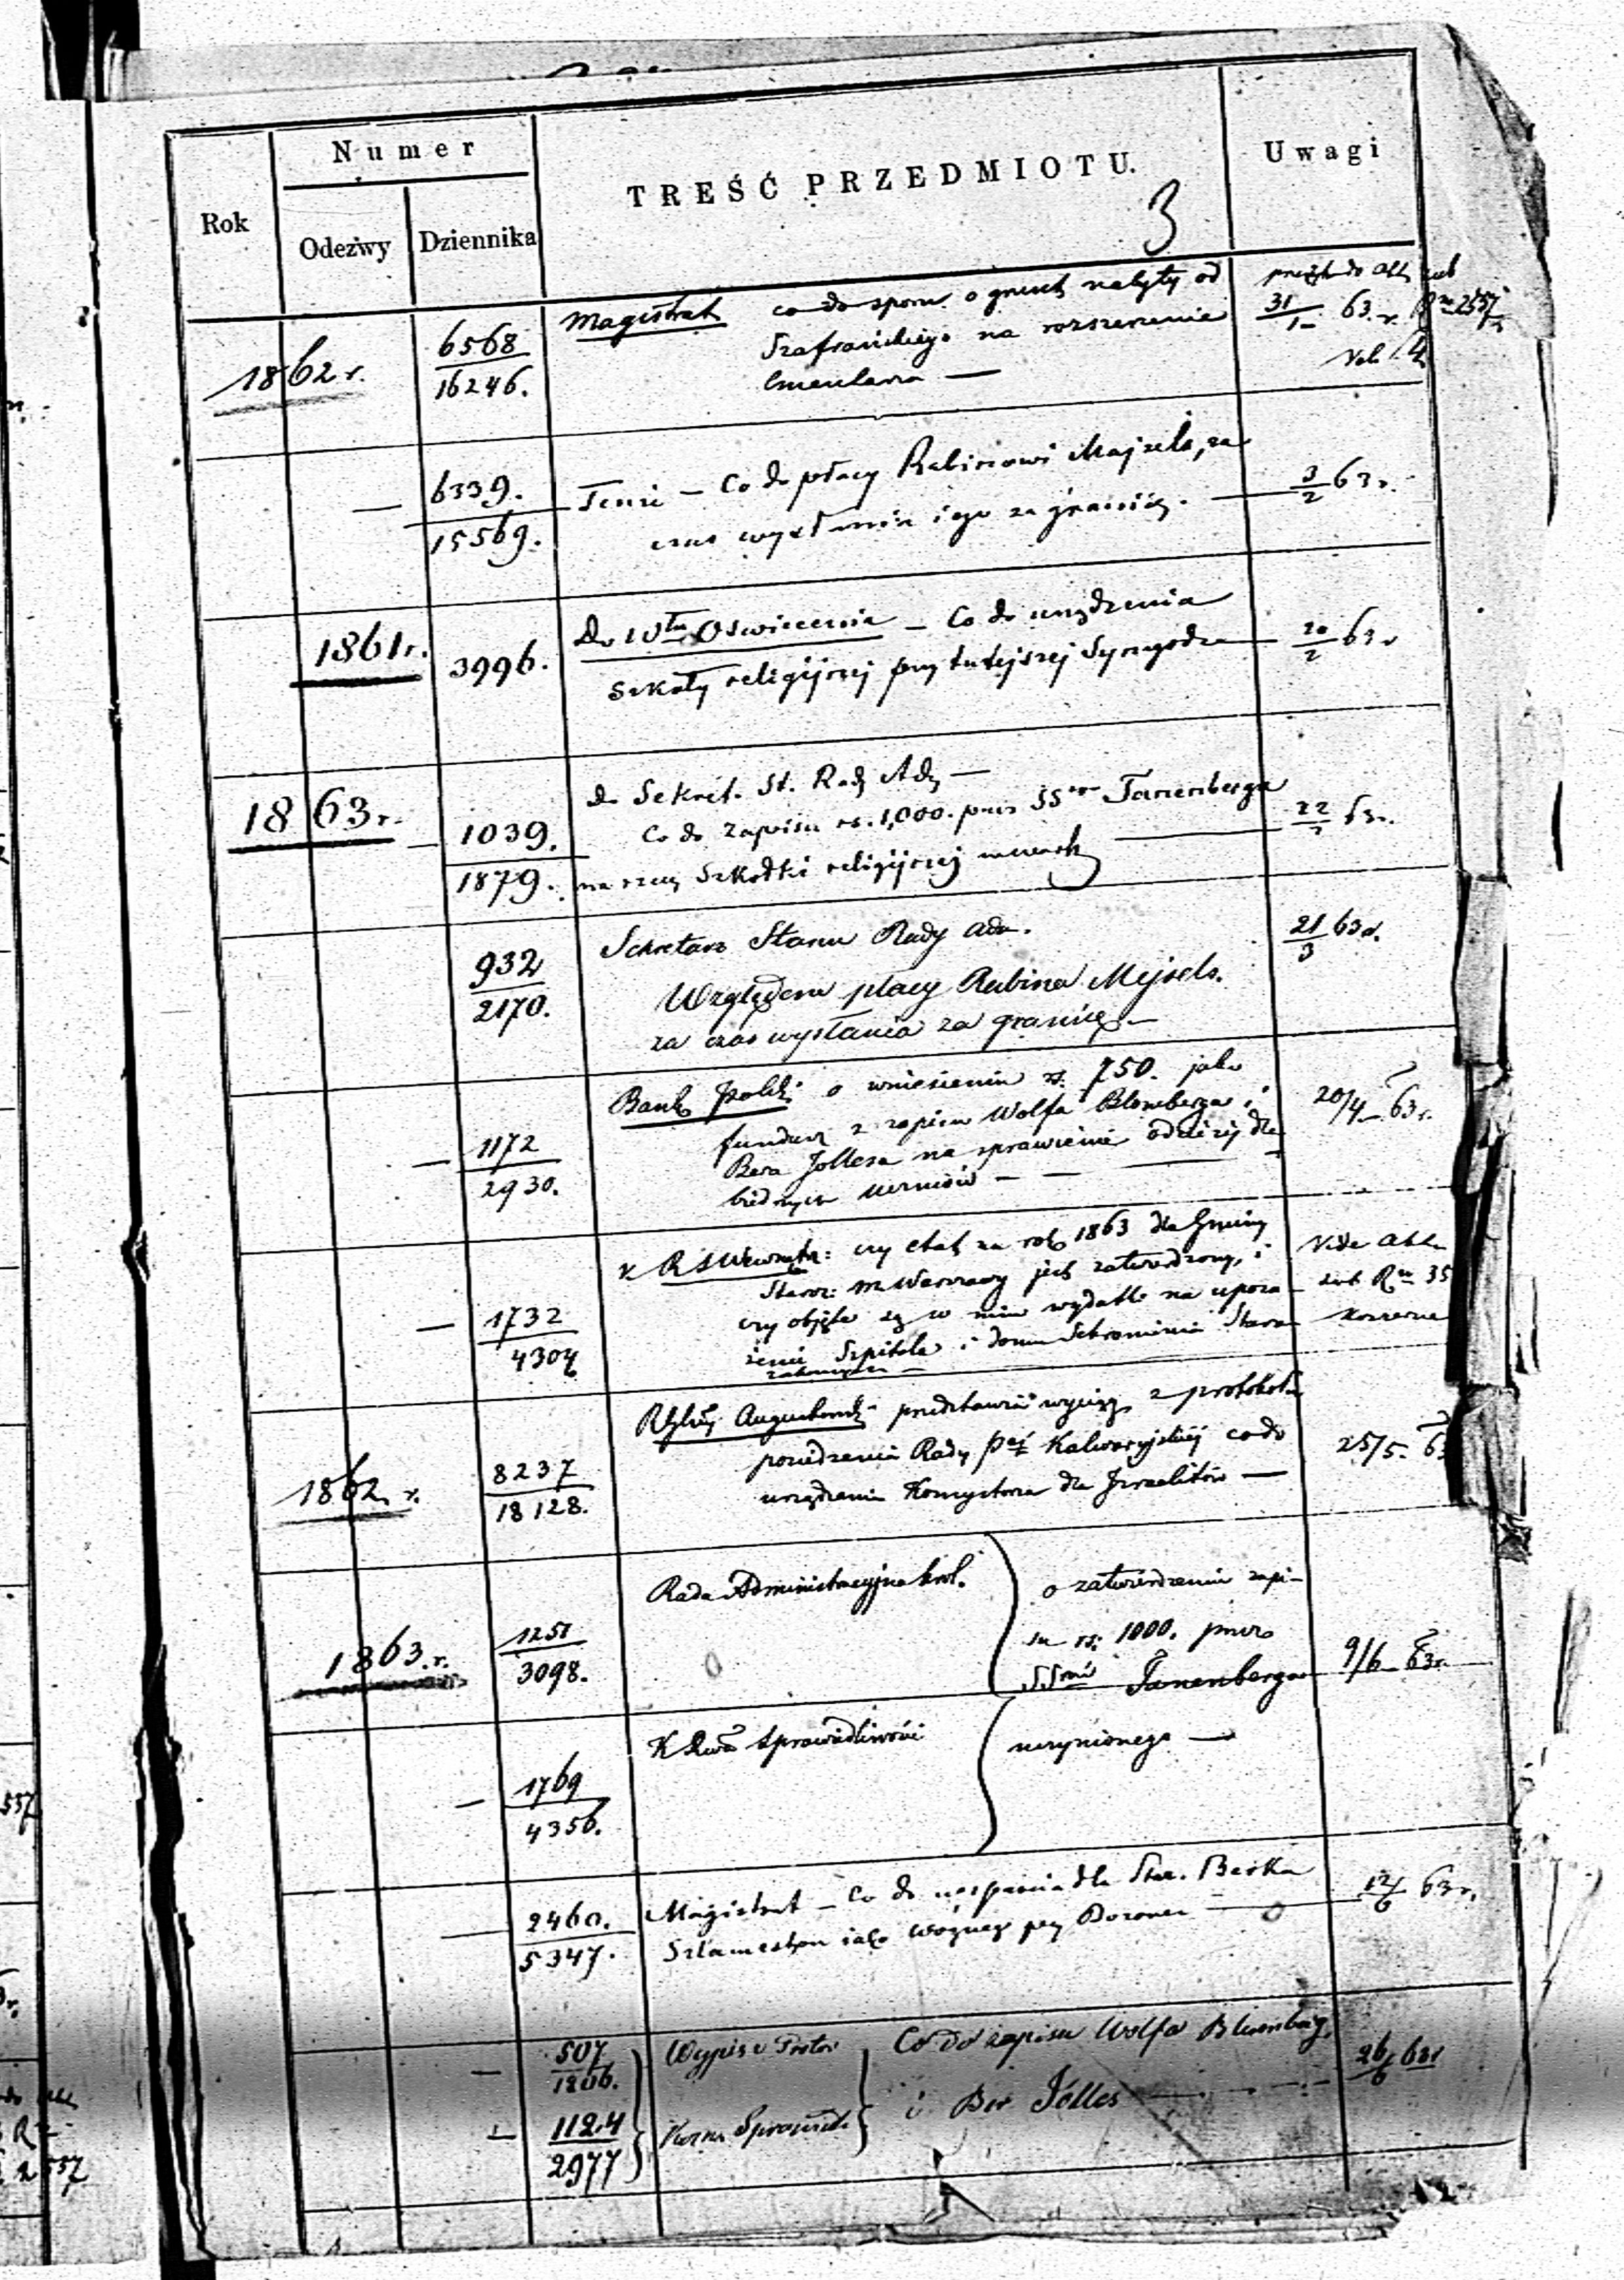 Rok
Numer
Odezwy
Dziennika
TREŚĆ PRZEDMIOTU.
3
Uwagi
1862 r.
6568
16246.
Magistrat co do sporu o grunt nabyty od
Szafrańskiego na rozszerzenie
Cmentarza —
31/1 63. r.
Vol. 4
— 6339.
15569.
Tenże — Co do płacy Rabinowi Majzels, za
czas wysłania jego za granicę. —
3/2 63 r.
1861 r.
3996.
Do Oswiecenia — Co do urządzenia
Szkoły religijnej przy tutejszej Synagodze —
20/2 63 r
1863 r.
— 1039.
1879.
do Sekret. St. Rady Adm —
Co do Zapisu rs. 1,000. przez SSrów Tanenberga
na rzecz Szkółki religijnej —
22/2 63 r.
932
2170.
Sekretarz Stanu Rady Adm.
Względem płacy Rabina Mejsels.
za czas wysłania za granicę. —
21/3 63 r.
— 1172
2930.
Bank Polski o wniesieniu rs. 750. jako
fundusz z zapisu Wolfa Blumberga i
Bera Jollesa na sprawienie odzieży dla
biednych uczniów — —
20/4 — 63 r.
— 1732
4304
czy etat na rok 1863 dla Gminy
Staroz: m Warszawy jest zatwierdzony, i
czy objęte są w nim wydatki na
Szpitala i domu Schronienia Staro
zakonnych —
Vide
35
1862 r.
8237
18128.
Augustowski przedstawia wyciąg z protokołu
posiedzenia Rady Kalwaryjskiej co do
urządzenia Konsystorza dla Izraelitów —
25/5. 63
1863. r.
1251
3098.
Rada Administracyjna król.
o zatwierdzenie zapi-
su rs: 1000. przez
SSrów Tanenberga
9/6 — 63 r.
— 1769
4356.
Sprawiedliwości
uczynionego —
— 2460.
5347.
Magistrat — Co do wsparcia dla Star. Berka
Szlamestra jako woźnego przy Dozorze —
12/6 63 r.
— 507
1806.
Wypis z Proto
Co do zapisu Wolfa Blumberg,
— 1124
2977
Kom. Sprawied.
i Ber Jolles — — —
26/6 63 r